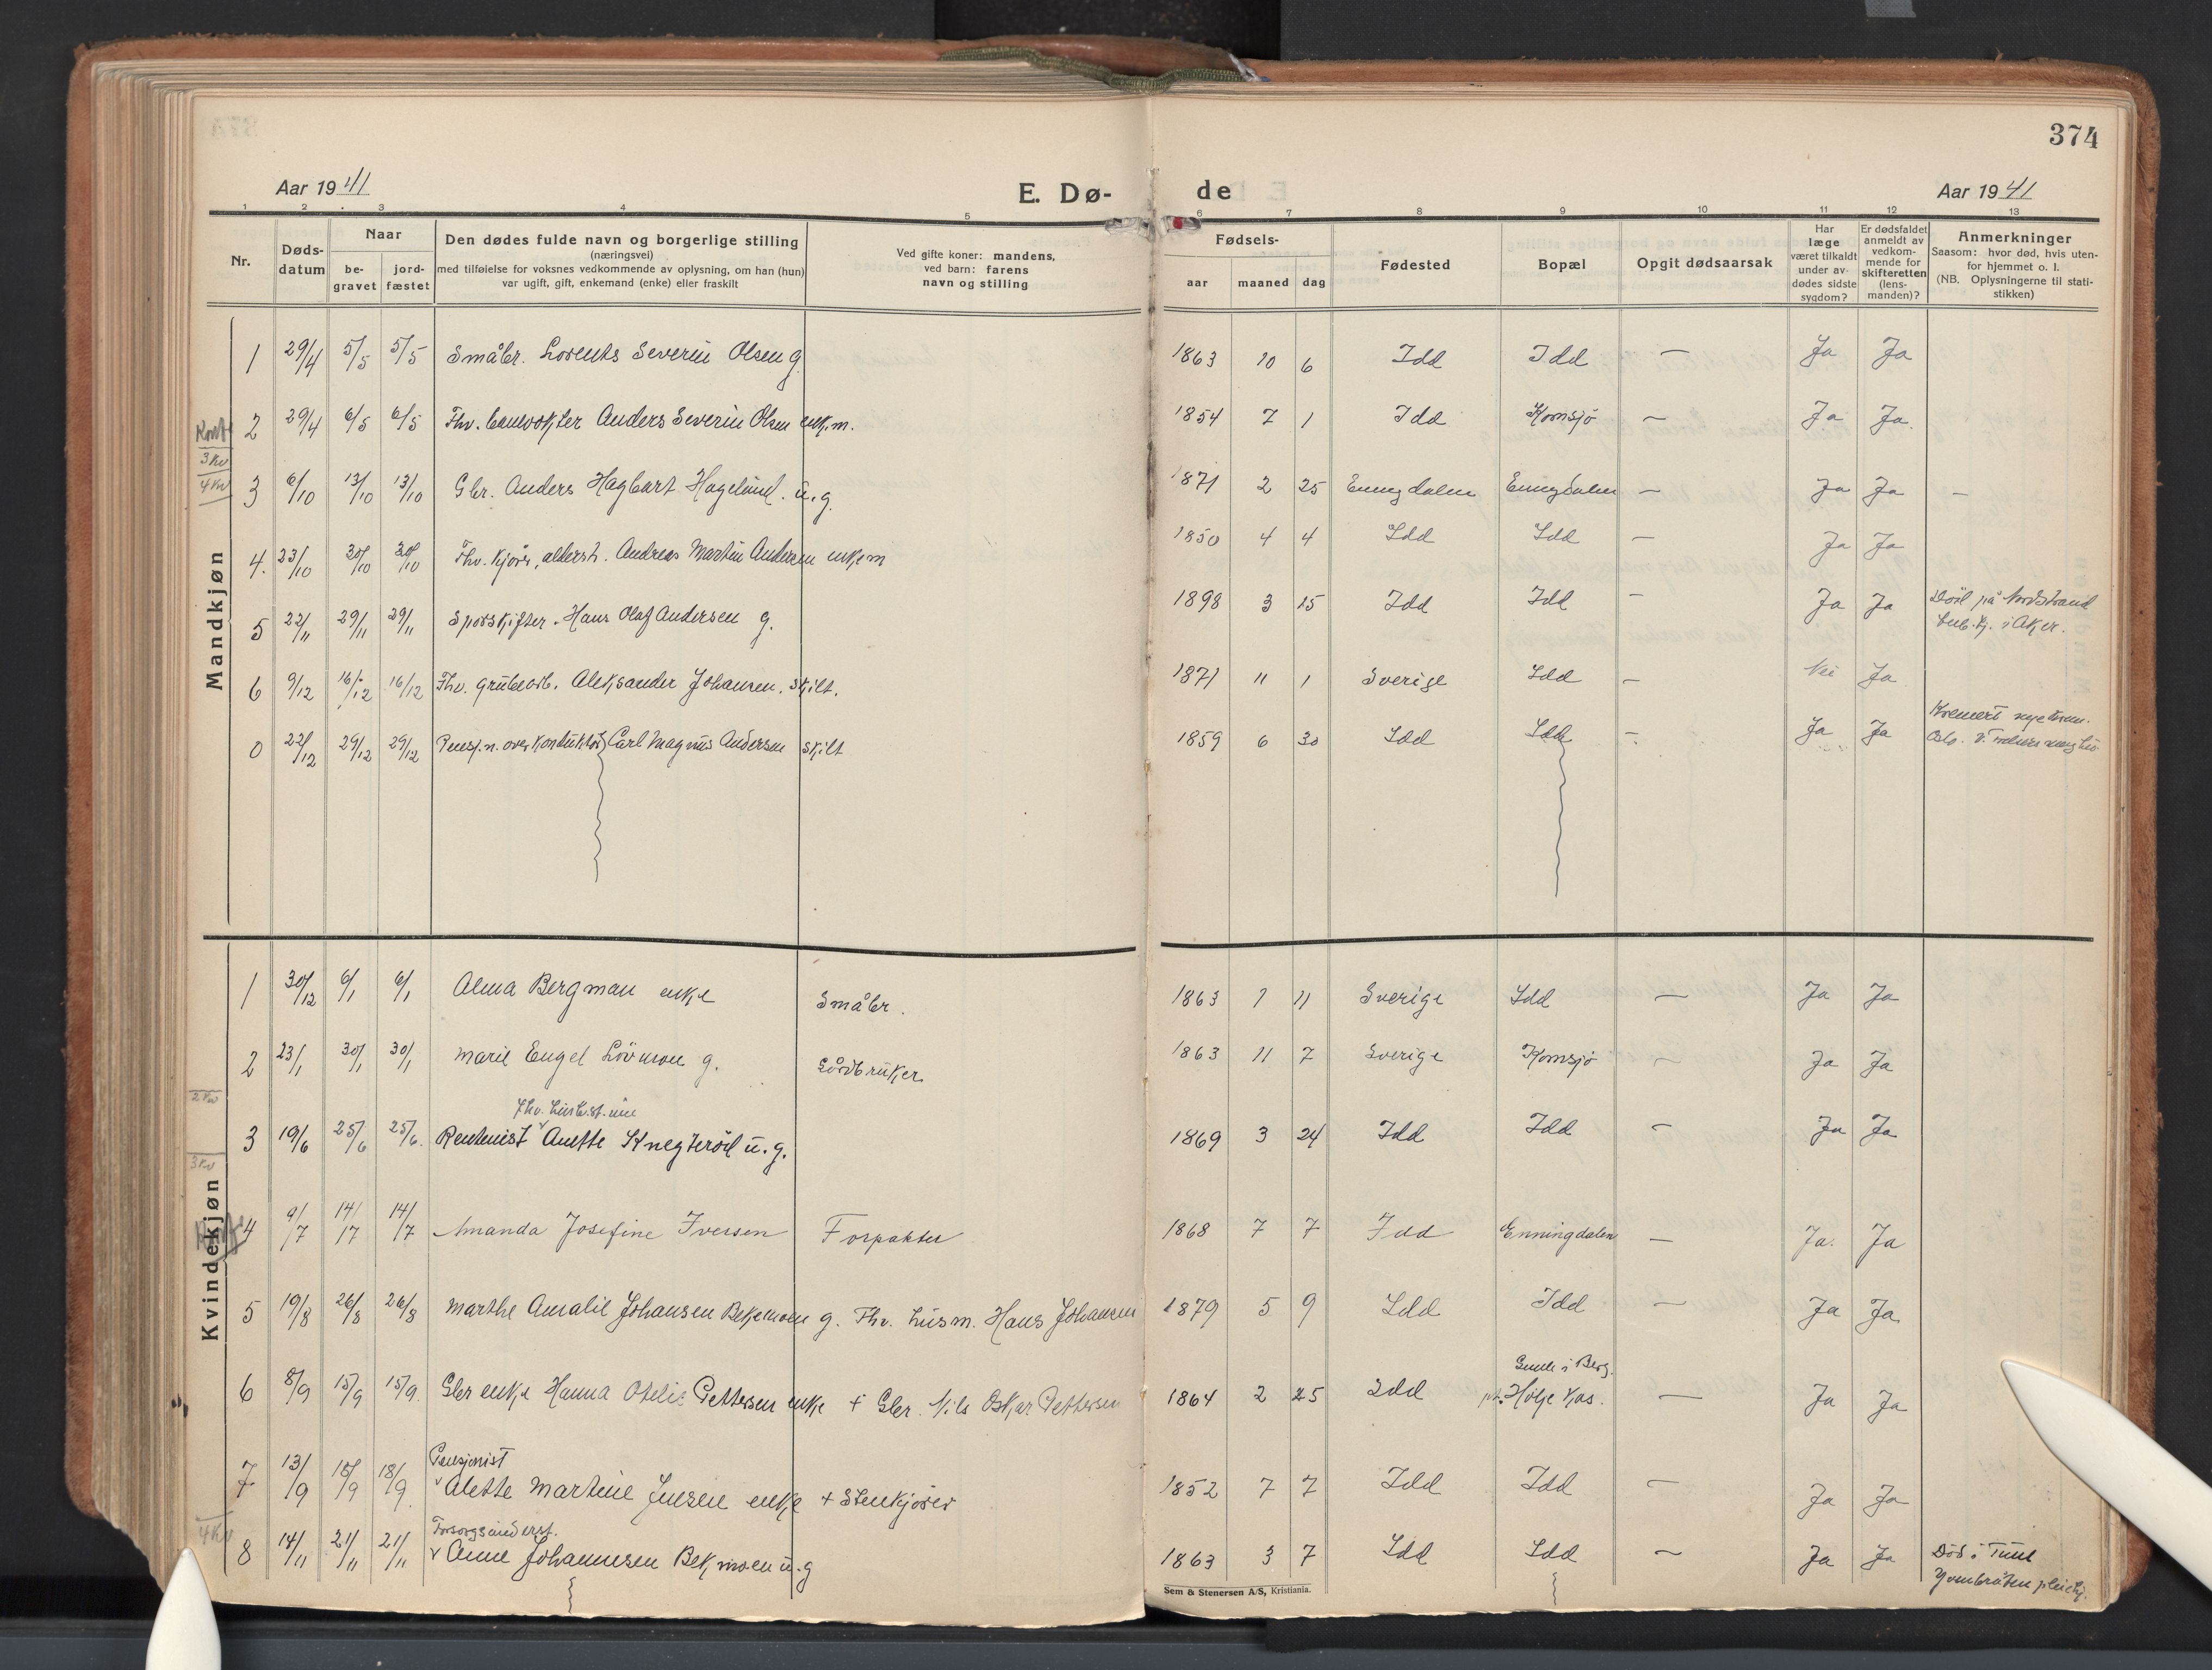 374
Aar 1941
E. Dø-
de
Aar 1941
1 2 3 4 5 6 7 8 9 10 11 12 13
Nr.
Døds-
datum
Naar
be-
gravet
jord-
fæstet
Den dødes fulde navn og borgerlige stilling
(næringsvei)
med tilføielse for voksnes vedkommende av oplysning, om han (hun)
var ugift, gift, enkemand (enke) eller fraskilt
Ved gifte koner: mandens,
ved barn: farens
navn og stilling
Fødsels-
aar maaned dag
Fødested
Bopæl
Opgit dødsaarsak
Har
læge
været tilkaldt
under av-
dødes sidste
sygdom?
Er dødsfaldet
anmeldt av
vedkom-
mende for
skifteretten
(lens-
manden)?
Anmerkninger
Saasom: hvor død, hvis uten-
for hjemmet o. l.
(NB. Oplysningerne til stati-
stikken)
Mandkjøn
1 29/4 5/5 5/5 Småbr. Lorents Severin Olsen g. 1863 10 6 Idd Idd — Ja Ja
2 29/4 6/5 6/5 Fhv. banevokter Anders Severin Olsen enkem. 1854 7 1 Idd Kornsjø — Ja Ja.
3 Kv
4 Kv
3 6/10 13/10 13/10 Gbr. Anders Hagbart Hagelund. u.g. 1871 2 25 Enningdalen Enningdalen — Ja Ja —
4. 23/10 30/10 30/10 Fhv. kjører, alderst. Andreas Martin Andersen enkem 1850 4 4 Idd Idd — Ja Ja
5 22/11 29/11 29/11 Sporskifter. Hans Olaf Andersen g. 1898 3 15 Idd Idd — Ja Ja Död på Nordstrand
tub.hj. i Aker.
6 9/12 16/12 16/12 Fhv. grubearb. Aleksander Johansen. skilt. 1871 11 1 Sverige Idd — Nei Ja
0 22/12 29/12 29/12 Pensj.n. overkonduktör Carl Magnus Andersen skilt 1859 6 30 Idd Idd — Ja Ja Kremert nye krem.
Oslo.
Kvindekjøn
1 30/12 6/1 6/1 Alma Bergman enke Småbr. 1863 1 11 Sverige Idd — Ja Ja
2 23/1 30/1 30/1 Marie Engel Lövmon g. Gårdbruker 1863 11 7 Sverige Kornsjø — Ja Ja
2 Kv
Fhv. husbest.inne
3 19/6 25/6 25/6. Rentenist Anette Knegterød u.g. 1869 3 24 Idd Idd — Ja Ja
3 Kv
4 9/7 14/17 14/7 Amanda Josefine Iversen Forpakter 1868 7 7 Idd Enningdalen — Ja. Ja
5 19/8 26/8 26/8 Marthe Amalie Johansen Bekkemoen g. Fhv. husm. Hans Johansen 1879 5 9 Idd Idd — Ja Ja
i Berg.
6 8/9 15/9 15/9. Gbr enke Hanna Otelie Pettersen enke + Gbr. Nils Oskar Pettersen 1864 2 25 Idd Kas. — Ja Ja
Pensjonist
7 13/9 18/9 18/9 Alette Martine Jensen enke + Stenkjører 1852 7 7 Idd Idd — Ja Ja
4 Kv
Forsorgsunderst.
8 14/11 21/11 21/11 Anne Johannesen Bekmoen u.g 1863 3 7 Idd Idd — Ja Ja Död i Tune
pleiehj.
Sem & Stenersen A/S, Kristiania.